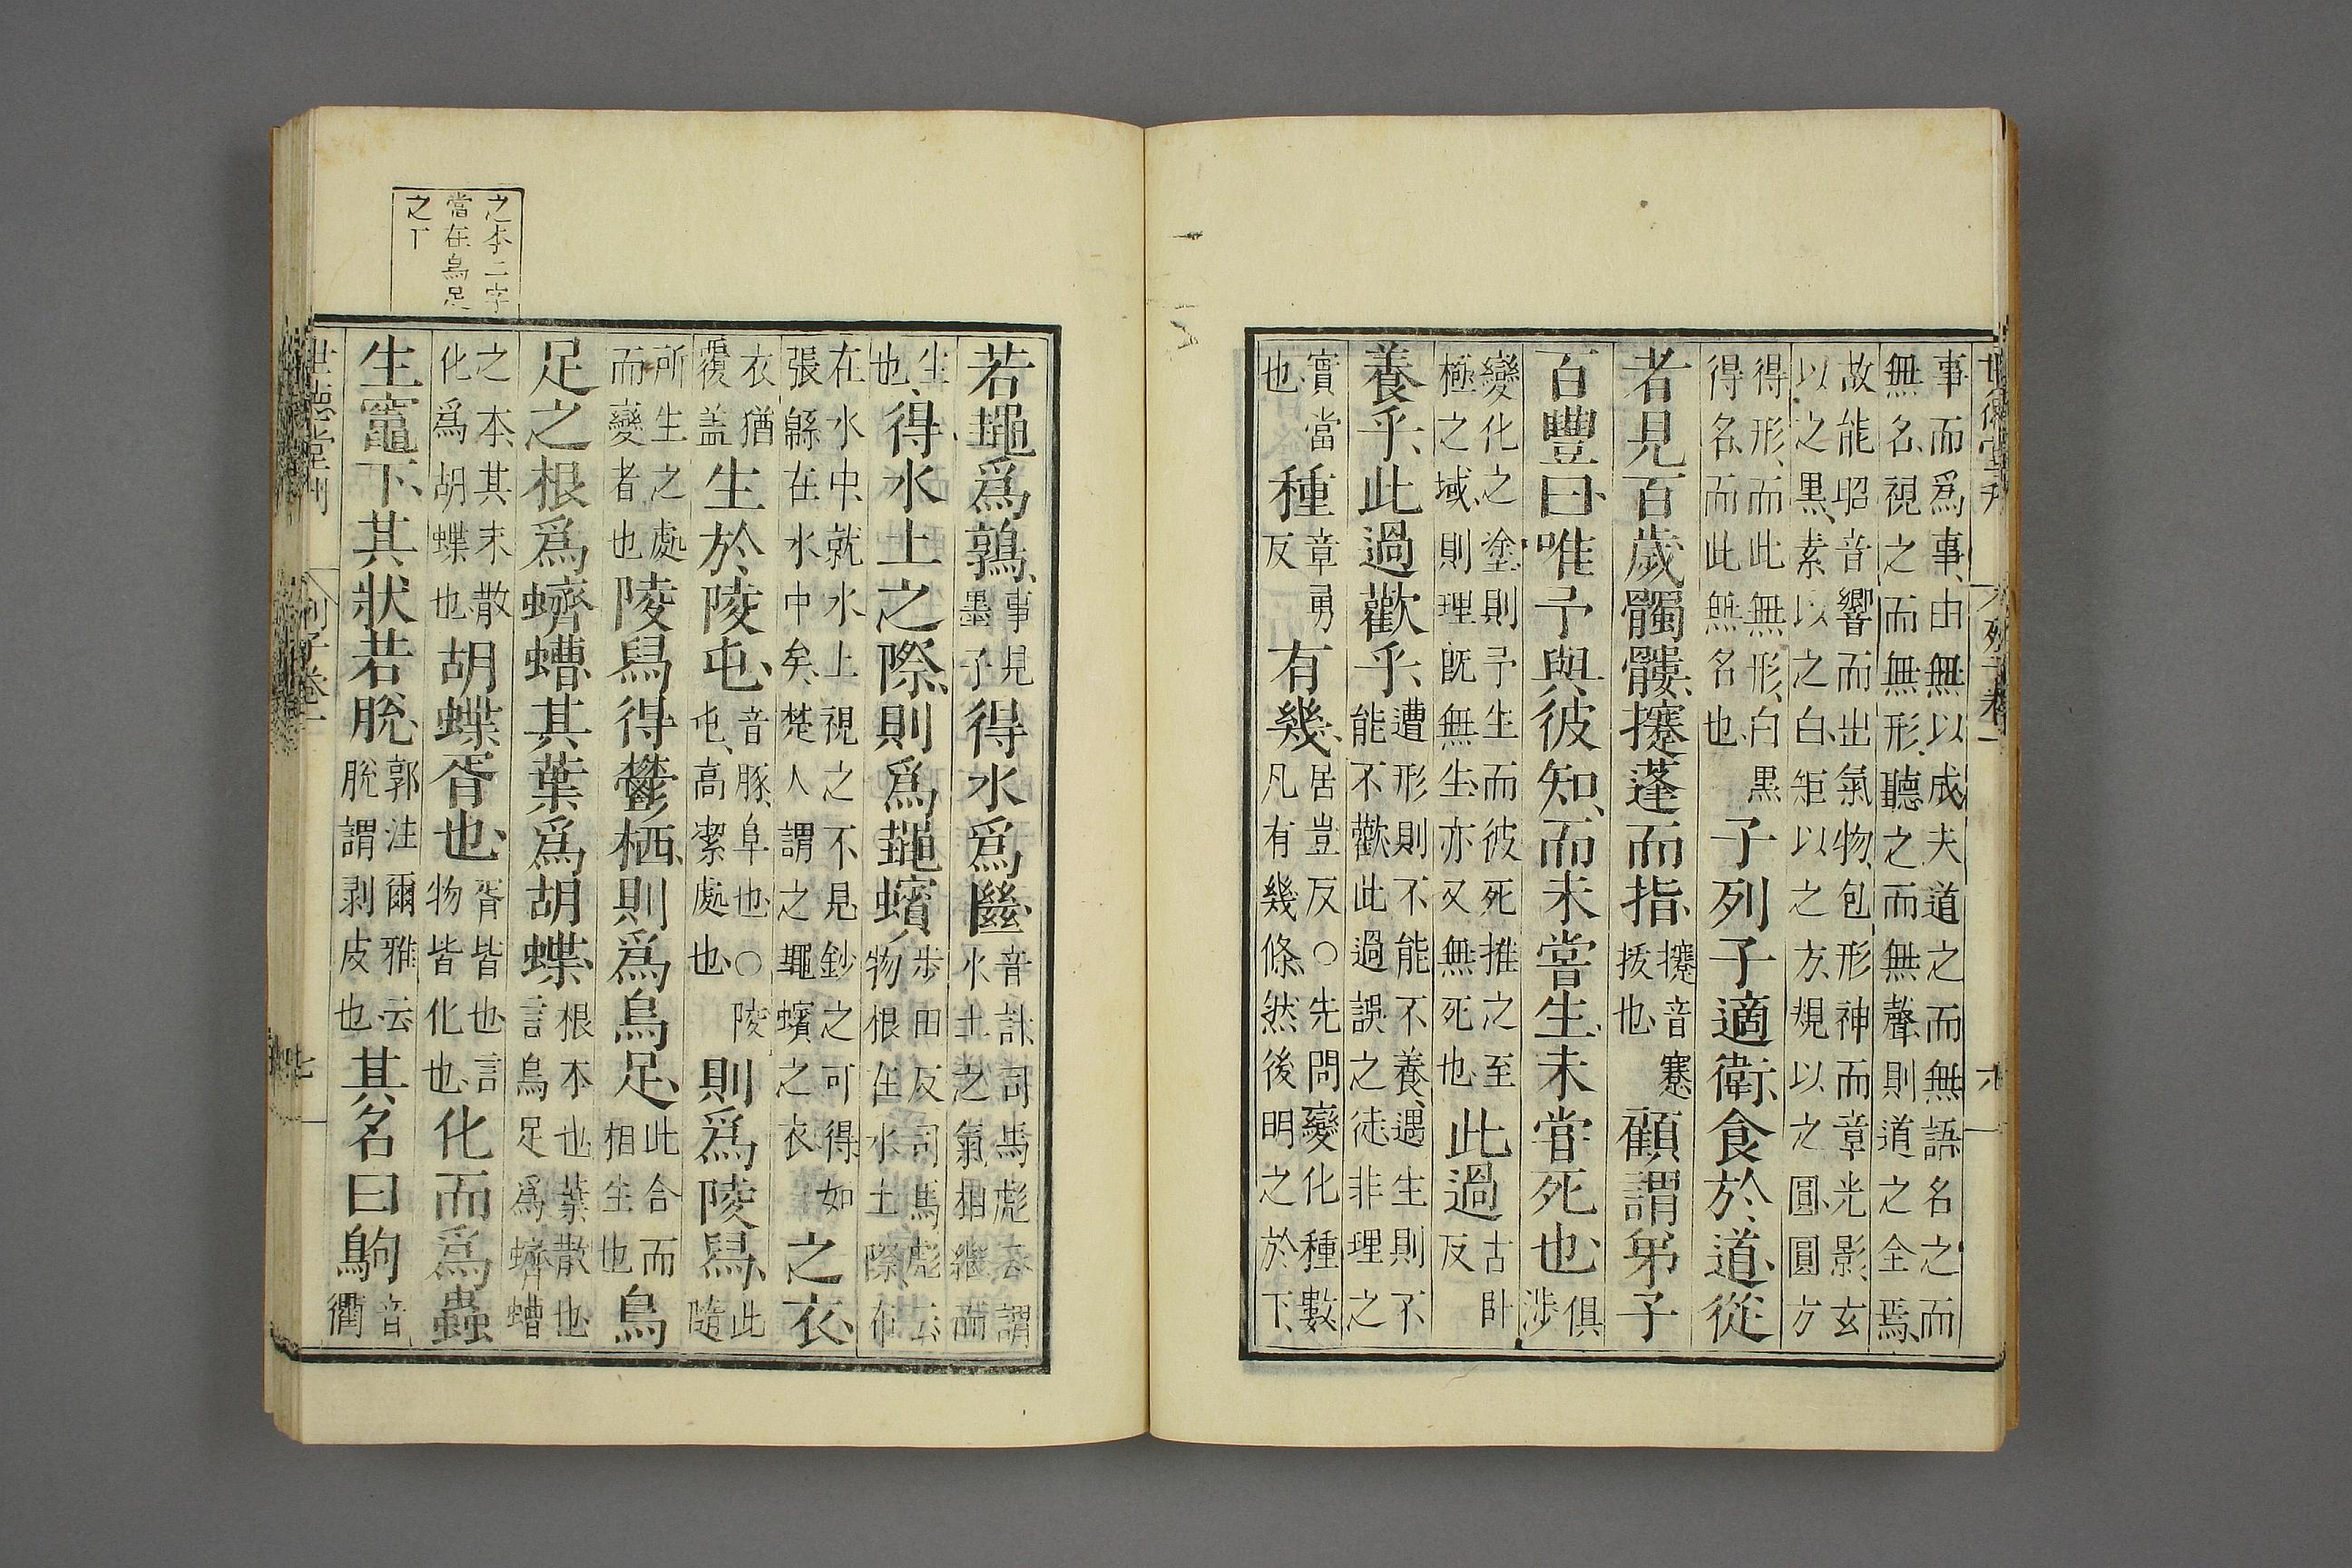 事而爲事由無以成夫道之而無語名之而
無名視之而無形聽之而無聲則道之全焉
故能昭音響而出氣物包形神而章光影玄
以之黑素以之白矩以之方規以之圓圓方
得形而此無形白黒
得名而此無名也
子列子適衛食於道從
者見百歲髑髏攓蓬而指
攓音蹇
拔也
顧謂弟子
百豐曰唯予與彼知而未嘗生未嘗死也
俱
涉
變化之塗則予生而彼死推之至
極之域則理旣無生亦又無死也
此過
古卧
反
養乎此過歡乎
遭形則不能不養遇生則不
能不歡此過誤之徒非理之
實當
也
種
章勇
反
有幾
居豈反○先問變化種數
凡有幾條然後明之於下
世德堂刊
列子卷一
六
若䵷爲鶉
事見
墨子
得水爲㡭
音計司馬彪云謂
水土之氣相繼而
生
也
得水土之際則爲䵷蠙
步田反司馬彪云
物根在水土際布
在水中就水上視之不見鈔之可得如
張緜在水中矣楚人謂之䵷蠙之衣
之衣
衣猶
覆蓋
生於陵屯
音豚阜也○陵
屯高潔處也
則爲陵舄
此
隨
所生之處
而變者也
陵舄得鬱栖則爲烏足
此合而
相生也
烏
足之根爲蠐螬其葉爲胡蝶
根本也葉散也
言烏足爲蠐螬
之本其末散
化爲胡蝶也
胡蝶胥也
胥皆也言
物皆化也
化而爲蟲
生竈下其狀若脫
郭注爾雅云
脫謂剥皮也
其名曰鴝
音
衢
之本二字
當在烏足
之下
世德堂刊
列子卷一
七